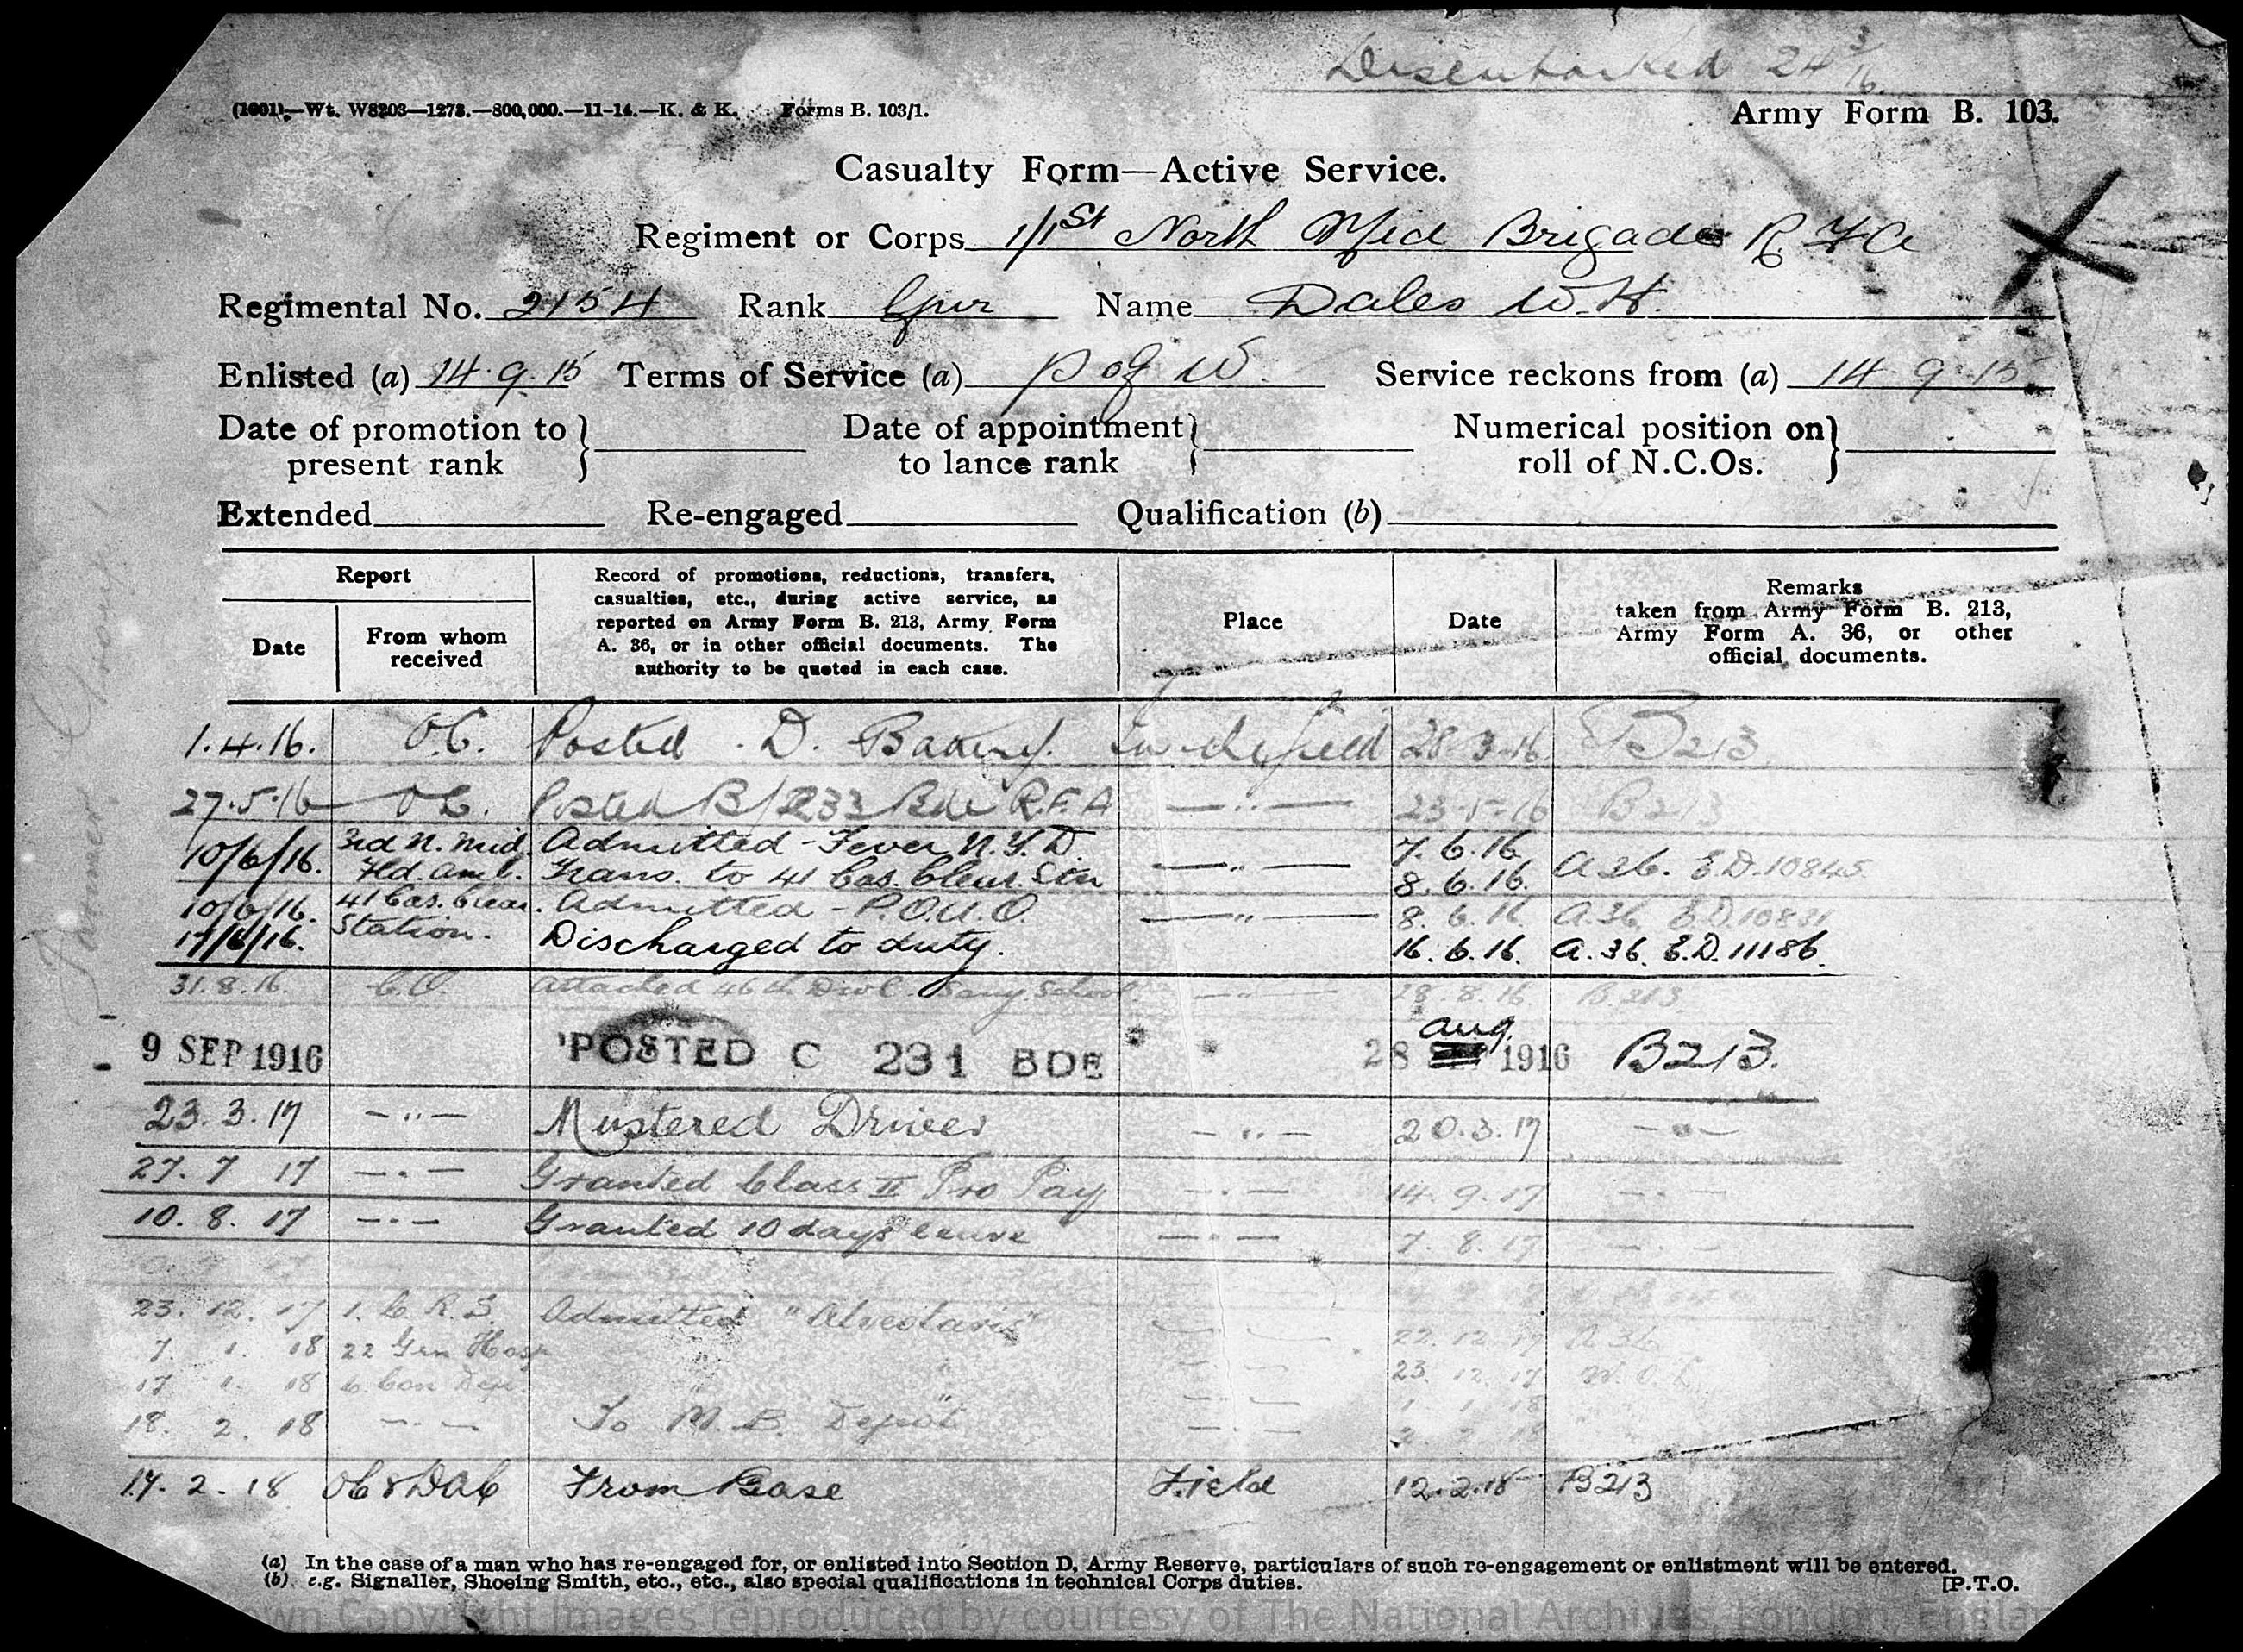 Disembarked 24/3/16.
(1601)—Wt. W8203—1273.—800,000.—11-14.—K. & K. Forms B. 103/1.
Army Form B. 103.
Casualty Form—Active Service.
Regiment or Corps 1/1st North Mid Brigade R.F.A
Regimental No. 2154 Rank Gnr Name Dales W.H.
Enlisted (a) 14.9.15 Terms of Service (a) P of W. Service reckons from (a) 14.9.15
Date of promotion to present rank } Date of appointment to lance rank } Numerical position on roll of N.C.Os. }
Extended Re-engaged Qualification (b)
Report
Date
From whom received
Record of promotions, reductions, transfers,
casualties, etc., during active service, as
reported on Army Form B. 213, Army Form
A. 36, or in other official documents. The
authority to be quoted in each case.
Place
Date
Remarks
taken from Army Form B. 213,
Army Form A. 36, or other
official documents.
1.4.16. O.C. Posted D. Battery. In the field 28.3.16 B213
27.5.16 O.C. Posted B/233 Bde R.F.A —„— 23.5.16 B213
10/6/16. 3rd N. Mid. Admitted - Fever N.Y.D. 7.6.16
Fld. Amb. Trans. to 41 Cas. Clear. Stn —„— 8.6.16. A36. E.D.10845
10/6/16. 41 Cas. Clear. Admitted - P.O.U.O. —„— 8.6.16 A.36 E.D.10831
17/6/16. Station. Discharged to duty. 16.6.16. A.36. E.D.11186.
31.8.16. C.O. Attached 46th Divl. School —„— 28.8.16. B.213
9 SEP 1916 POSTED C 231 BDE „ 28 Aug 1916 B213.
23.3.17 —„— Mustered Driver —„— 20.3.17 —„—
27.7.17 —„— Granted Class II Pro Pay —„— 14.9.17 —„—
10.8.17 —„— Granted 10 days leave —„— 7.8.17 —„—
23.12.17 1. C.R.S. Admitted "Alveolaris" —„— 22.12.17 A36
7.1.18 22 Gen Hosp „ „ —„— 23.12.17
17.1.18 6. Con Dep „ „ —„— 1.1.18
18.2.18 —„— To M.B. Depot —„— 2.2.18
17.2.18 From Base Field 12.2.18 B213
(a) In the case of a man who has re-engaged for, or enlisted into Section D, Army Reserve, particulars of such re-engagement or enlistment will be entered.
(b) e.g. Signaller, Shoeing Smith, etc., etc., also special qualifications in technical Corps duties.
[P.T.O.
Copyright Images reproduced by courtesy of The National Archives, London, England